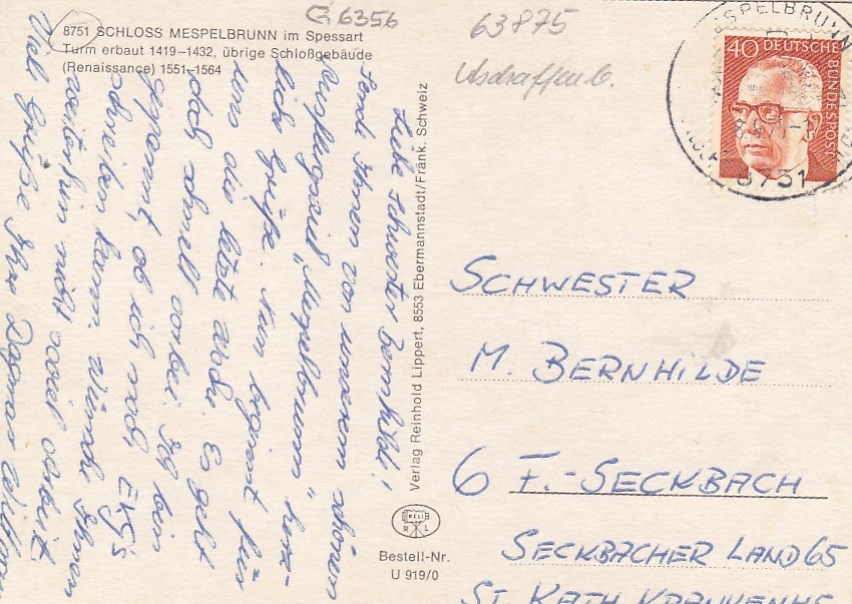 G 6356
63875
Aschaffenb.
8751 SCHLOSS MESPELBRUNN im Spessart
Turm erbaut 1419–1432, übrige Schloßgebäude
(Renaissance) 1551–1564
Liebe Schwester Bernhilde!
Sende Ihnen von unserem schönen
Ausflugsziel „Mespelbrunn" herz-
liche Grüße. Nun beginnt für
uns die letzte Woche. Es geht
doch schnell vorbei. Ich bin
gespannt, ob ich noch EKG's
schreiben kann. Wünsche Ihnen
weiterhin nicht soviel Arbeit
Viele Grüße Ihre Dagmar
Verlag Reinhold Lippert, 8553 Ebermannstadt/Fränk. Schweiz
R L
Bestell-Nr.
U 919/0
ESPELBRUNN
8751
40 DEUTSCHE
BUNDESPOST
SCHWESTER
M. BERNHILDE
6 F.-SECKBACH
SECKBACHER LAND 65
ST. KATH. KRANKENHS